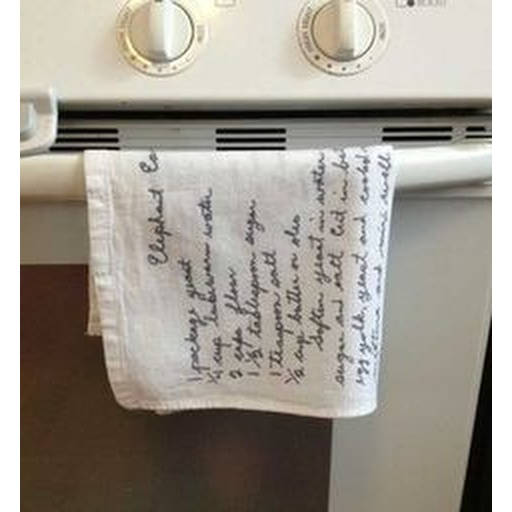 Elephant Ea
1 package yeast
¼ cup lukewarm water
2 cups flour
1 ½ tablespoon sugar
1 teaspoon salt
½ cup butter or oleo
Soften yeast in water
sugar and salt Cut in bu
egg yolk, yeast and cooled
and mix well